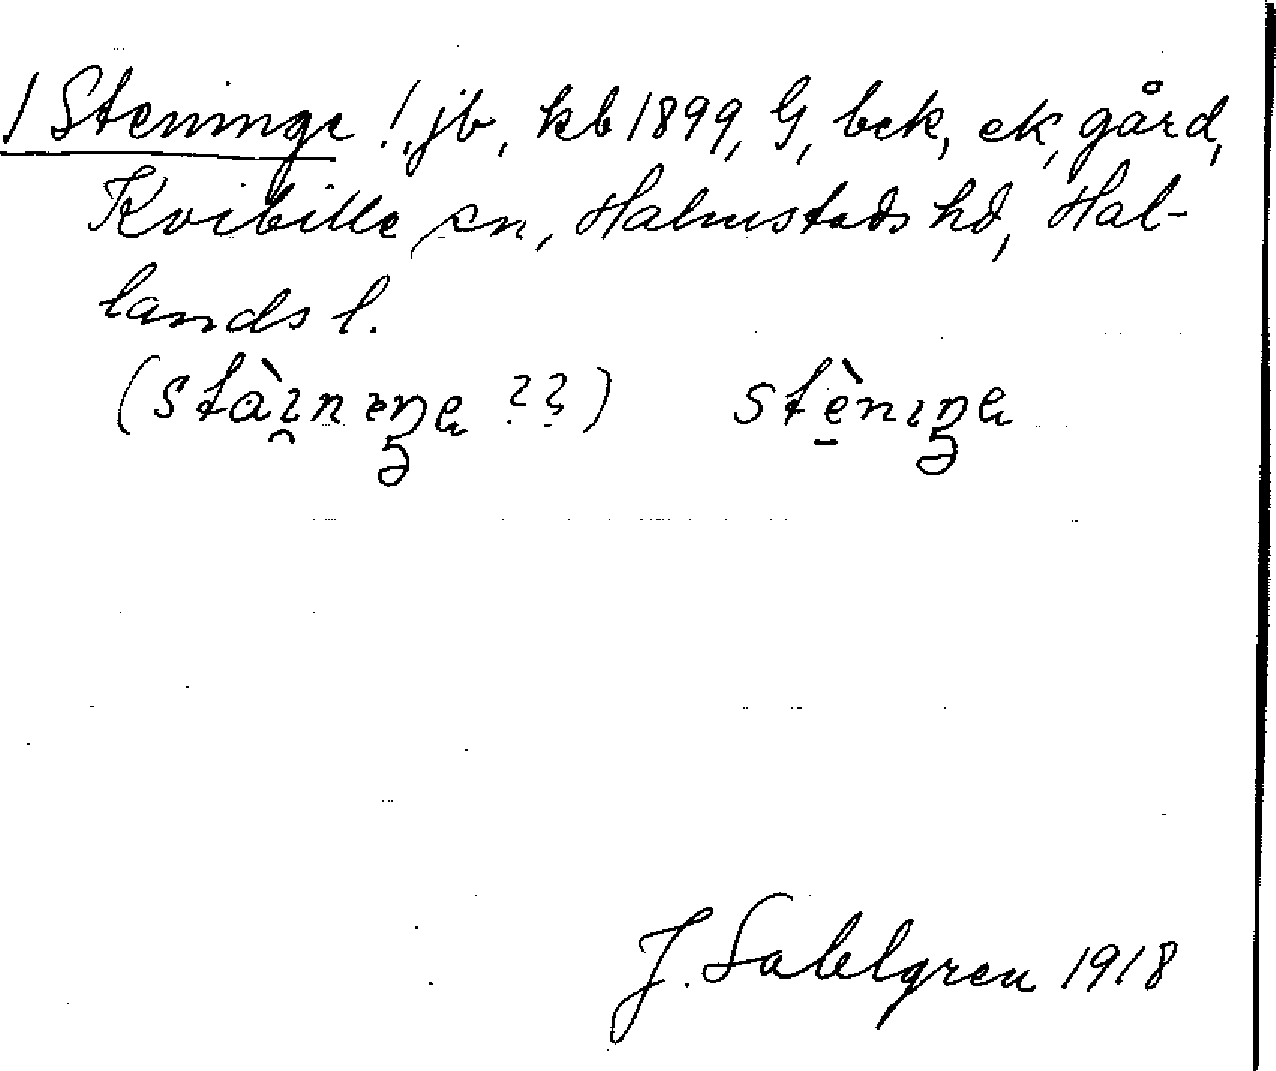 1 Steninge !, jb, kb 1899, G, bek, ek, gård,
Kvibille sn, Halmstads hd, Hal-
lands l.
(stàı̯nıŋɜe ??) stènıŋɜe
J. Sahlgren 1918